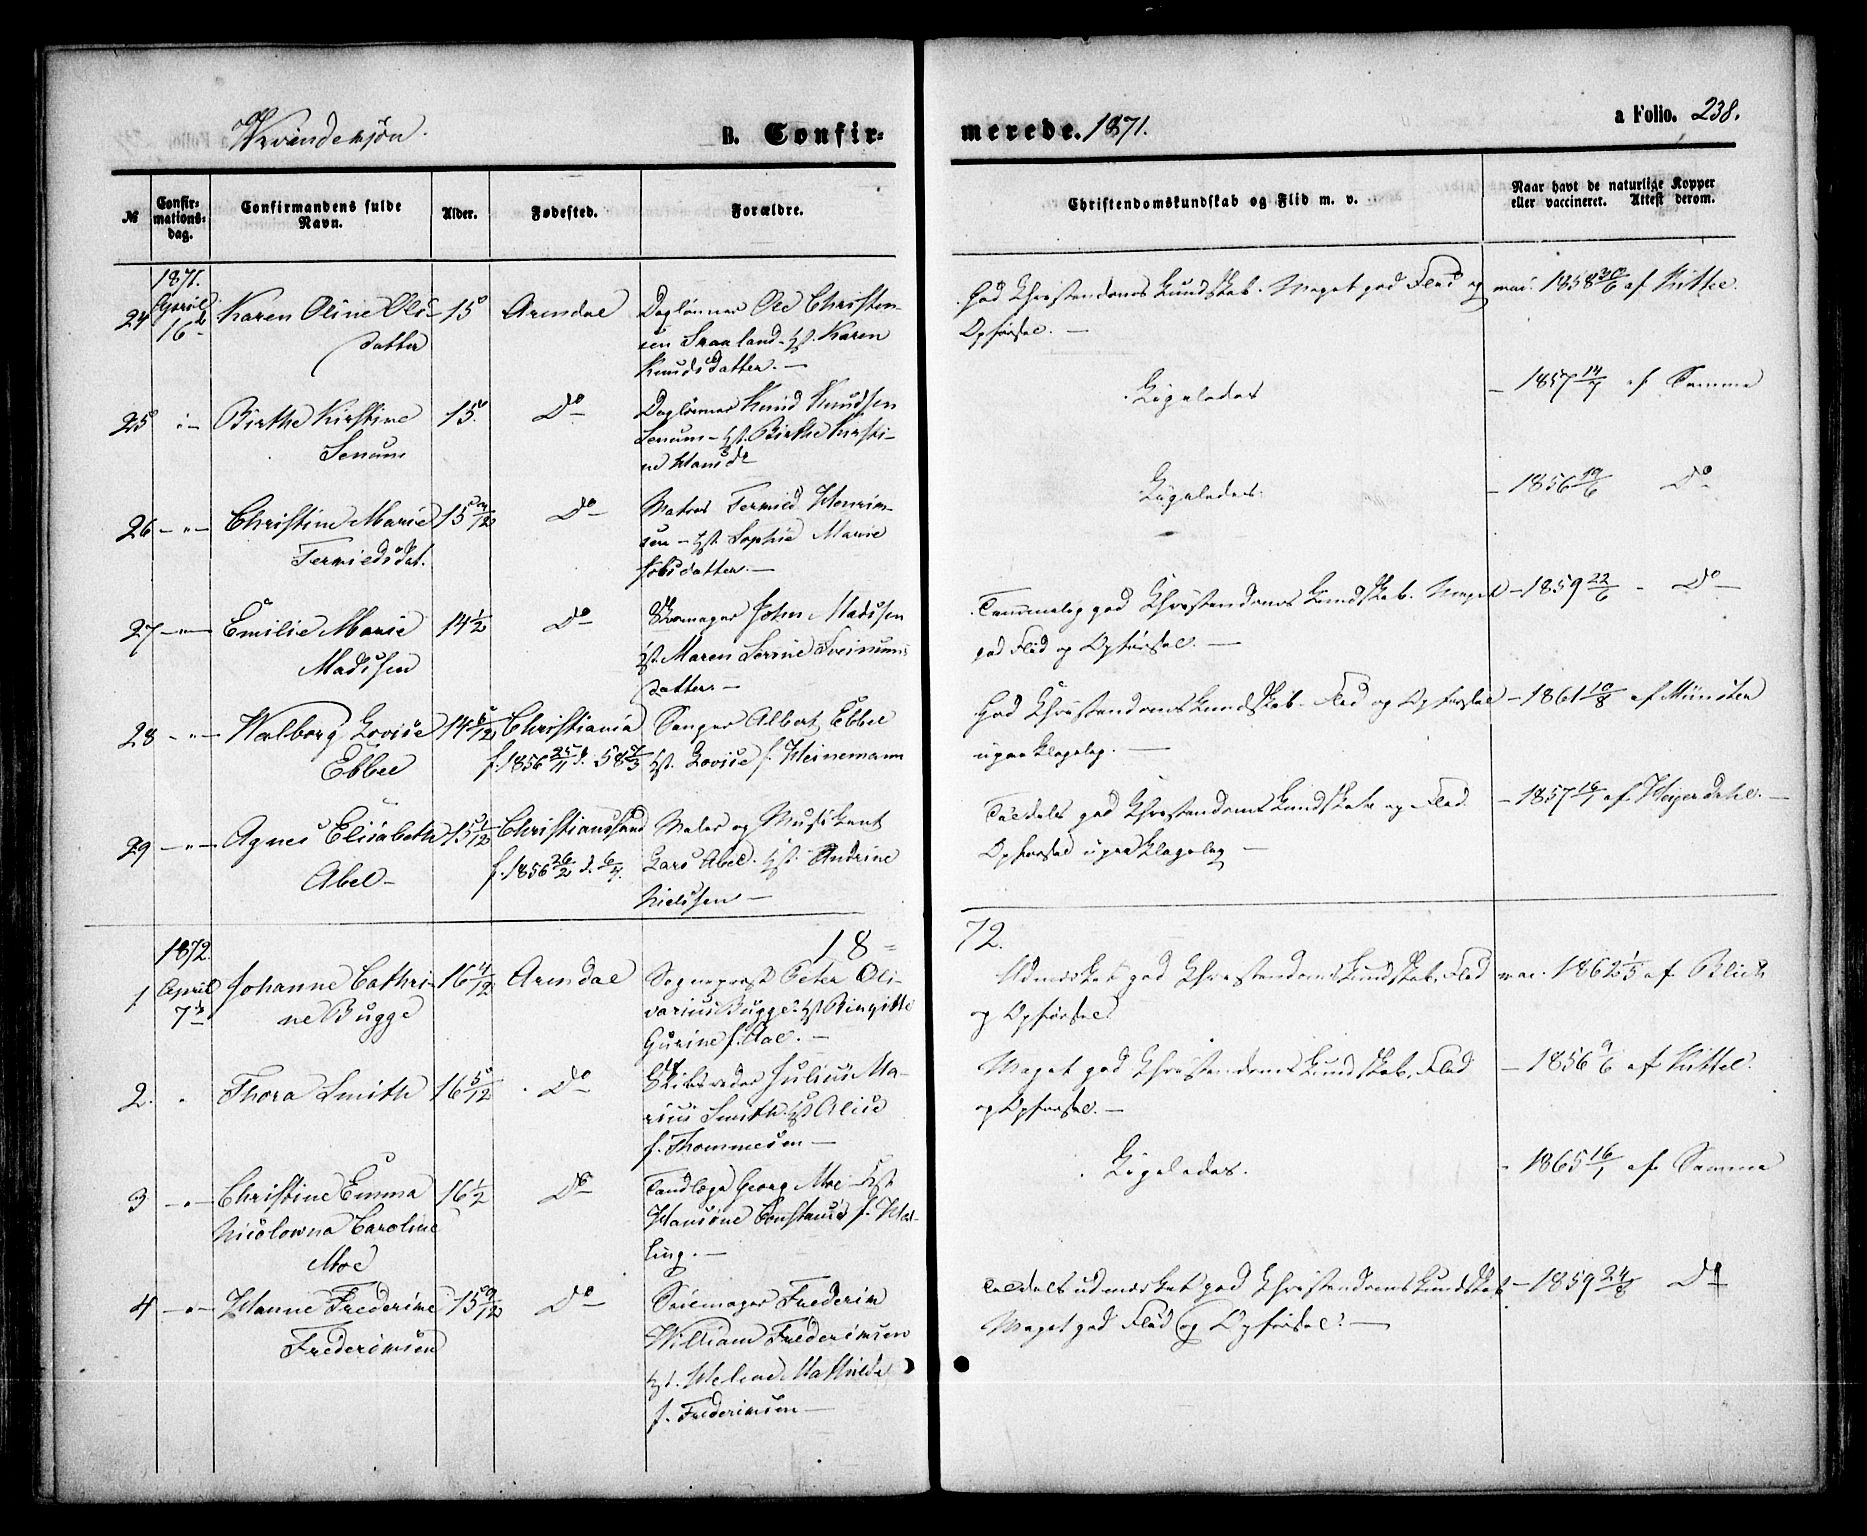 Kvindekjøn.
B. Confirmerede. 1871.
a Folio. 238.
№
Confirmationsdag.
Confirmandens fulde Navn.
Alder.
Fødested.
Forældre.
Christendomskundskab og Flid m. v.
Naar havt de naturlige Kopper
eller vaccineret. Attest derom.
1871.
24 April 16d Karen Oline Ols- 15 Arendal Dagleiner Ole Christen-
datter
sen Fraaland - Hst. Karen
Knudsdatter. —
God Christendoms Kundskab. Meget god Flid og
Opførsel. —
vac. 1858 30/6 af Kittel.
25 - " - Birthe Kirstine 15 Do
Senum
Dagleiner Knud Knudsen
Senum - Hst. Birthe Kirsti-
ne Hansd.
Ligeledes
- 1857 14/7 af Samme
26 - " - Christine Marie 15 Do
Termiedsdat.
Matros Termied Henrik-
sen - Hst. Sophie Marie
Jobsdatter. —
Ligeledes.
- 1856 19/6 Do
27 - " - Emilie Marie 14 1/2 Do
Madssen
Skomager John Madssen
Hst. Maren Serine Sveinuns
datter. —
Temmelig god Christendoms Kundskab. Meget
god Flid og Opførsel. —
- 1859 22/6 - Do
28 - " - Valborg Lovise 14 Christiania
Ebbel
f. 1856 25/11 d. 58 7/3
Sanger Albert Ebbel
Hst. Lovise f. Heinemann
God Christendoms Kundskab. Flid og Opførsel
upaaklagelig. —
- 1861 10/8 af Münster
29 - " - Agnes Elisabeth 15 Christianssand
Abel -
f. 1856 26/2 d. 6/4.
Maler og Musikant
Lars Abel. Hst. Andrine
Nielssen —
Tildels god Christendoms Kundskab og Flid.
Opførsel upaaklagelig —
- 1857 16/1 af Heyerdahl. —
1872.
18 = 72.
1 April 7d Johanne Cathri- 16 4/12 Arendal
ne Bugge
Sogneprest Peter Oli-
varius Bugge. Hst. Birgitte
Gurine f. Aal. —
Udmerket god Christendoms Kundskab. Flid
og Opførsel
vac. 1862 1/5 af Blich
2. " Thora Smith 16 5/12 Do
Skibsreder Julius Ma-
rius Smith. Hst Alise
f. Thommesen —
Meget god Christendoms Kundskab. Flid
og Opførsel. —
- 1856 9/6 af Kittel.
3 - " - Christine Emma 16 1/2 Do
Nicolowna Caroline
Moe
Tandlæge Georg Moe - Hst
Hansine Constanse f. Mal-
ling. —
Ligeledes.
- 1865 16/1 af Samme
4 - " - Hanne Frederikke 15 Do
Frederiksen
Seilmager Frederik
William Frederiksen
Hst. Helene Mathilde
f. Frederiksen —
Tildels udmerket god Christendoms Kundskab
Meget god Flid og Opførsel. —
- 1859 24/8 Do